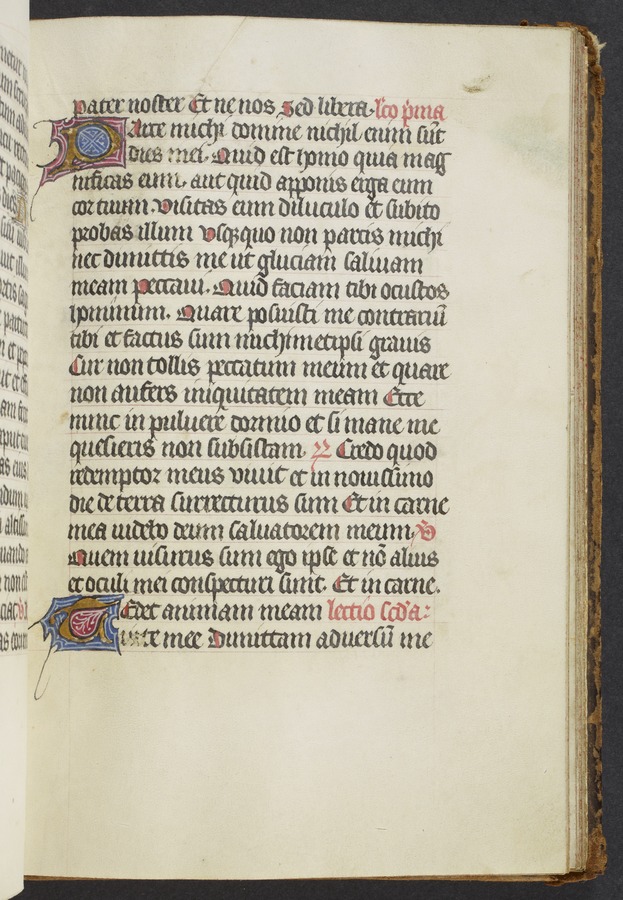 pater noster Et ne nos Sed libera. lco p'ma
Parce michi domine nichil enim su͞t
dies mei. Quid est homo quia mag
nificas eum. aut quid apponis erga eum
cor tuum. Visitas eum diluculo et subito
probas illum Vsqꝫquo non parcis michi
nec dimittis me ut gluciam saliuam
meam peccaui. Quid faciam tibi o custos
hominum. Quare posuisti me contrariu͞
tibi et factus sum michimetipsi grauis
Cur non tollis peccatum meum et quare
non aufers iniquitatem meam Ecce
nunc in puluere dormio et si mane me
quesieris non subsistam. R Credo quod
redemptor meus viuit et in nouissimo
die de terra surrecturus sum Et in carne
mea uidebo deum saluatorem meum. V
Quem uisurus sum ego ipse et no͞ alius
et oculi mei conspecturi sunt. Et in carne.
Tedet animam meam lectio scd'a:
uite mee Dimittam adversu͞ me